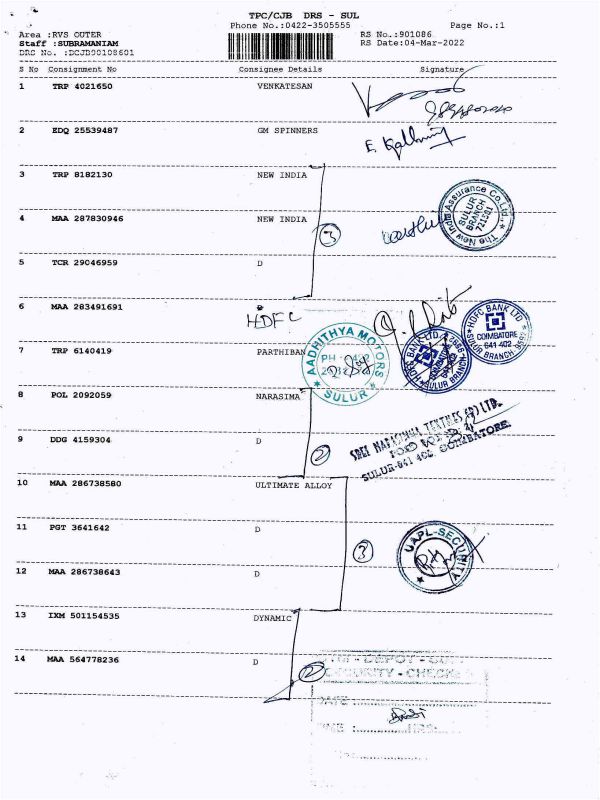 TPC/CJB DRS - SUL
Phone No.:0422-3505555 Page No.:1
Area :RVS OUTER RS No.:901086
Staff :SUBRAMANIAM RS Date:04-Mar-2022
DRS No. :DCJB00108601
S No Consignment No Consignee Details Signature
1 TRP 4021650 VENKATESAN
2 EDQ 25539487 GM SPINNERS
3 TRP 8182130 NEW INDIA
The New India Assurance Co.Ltd.,
SULUR
BRANCH
721501
4 MAA 287830946 NEW INDIA
3
5 TCR 29046959 D
6 MAA 283491691
HDFC
HDFC BANK LTD
COIMBATORE
641 402
SULUR BRANCH
7 TRP 6140419 PARTHIBAN
AADHITHYA MOTORS
SULUR
HDFC BANK LTD
SULUR BRANCH
8 POL 2092059 NARASIMA
SULUR-641 402, COIMBATORE.
9 DDG 4159304 D
2
10 MAA 286738580 ULTIMATE ALLOY
11 PGT 3641642 D
UAPL-SECURITY
3
12 MAA 286738643 D
13 IXM 501154535 DYNAMIC
14 MAA 564778236 D
2